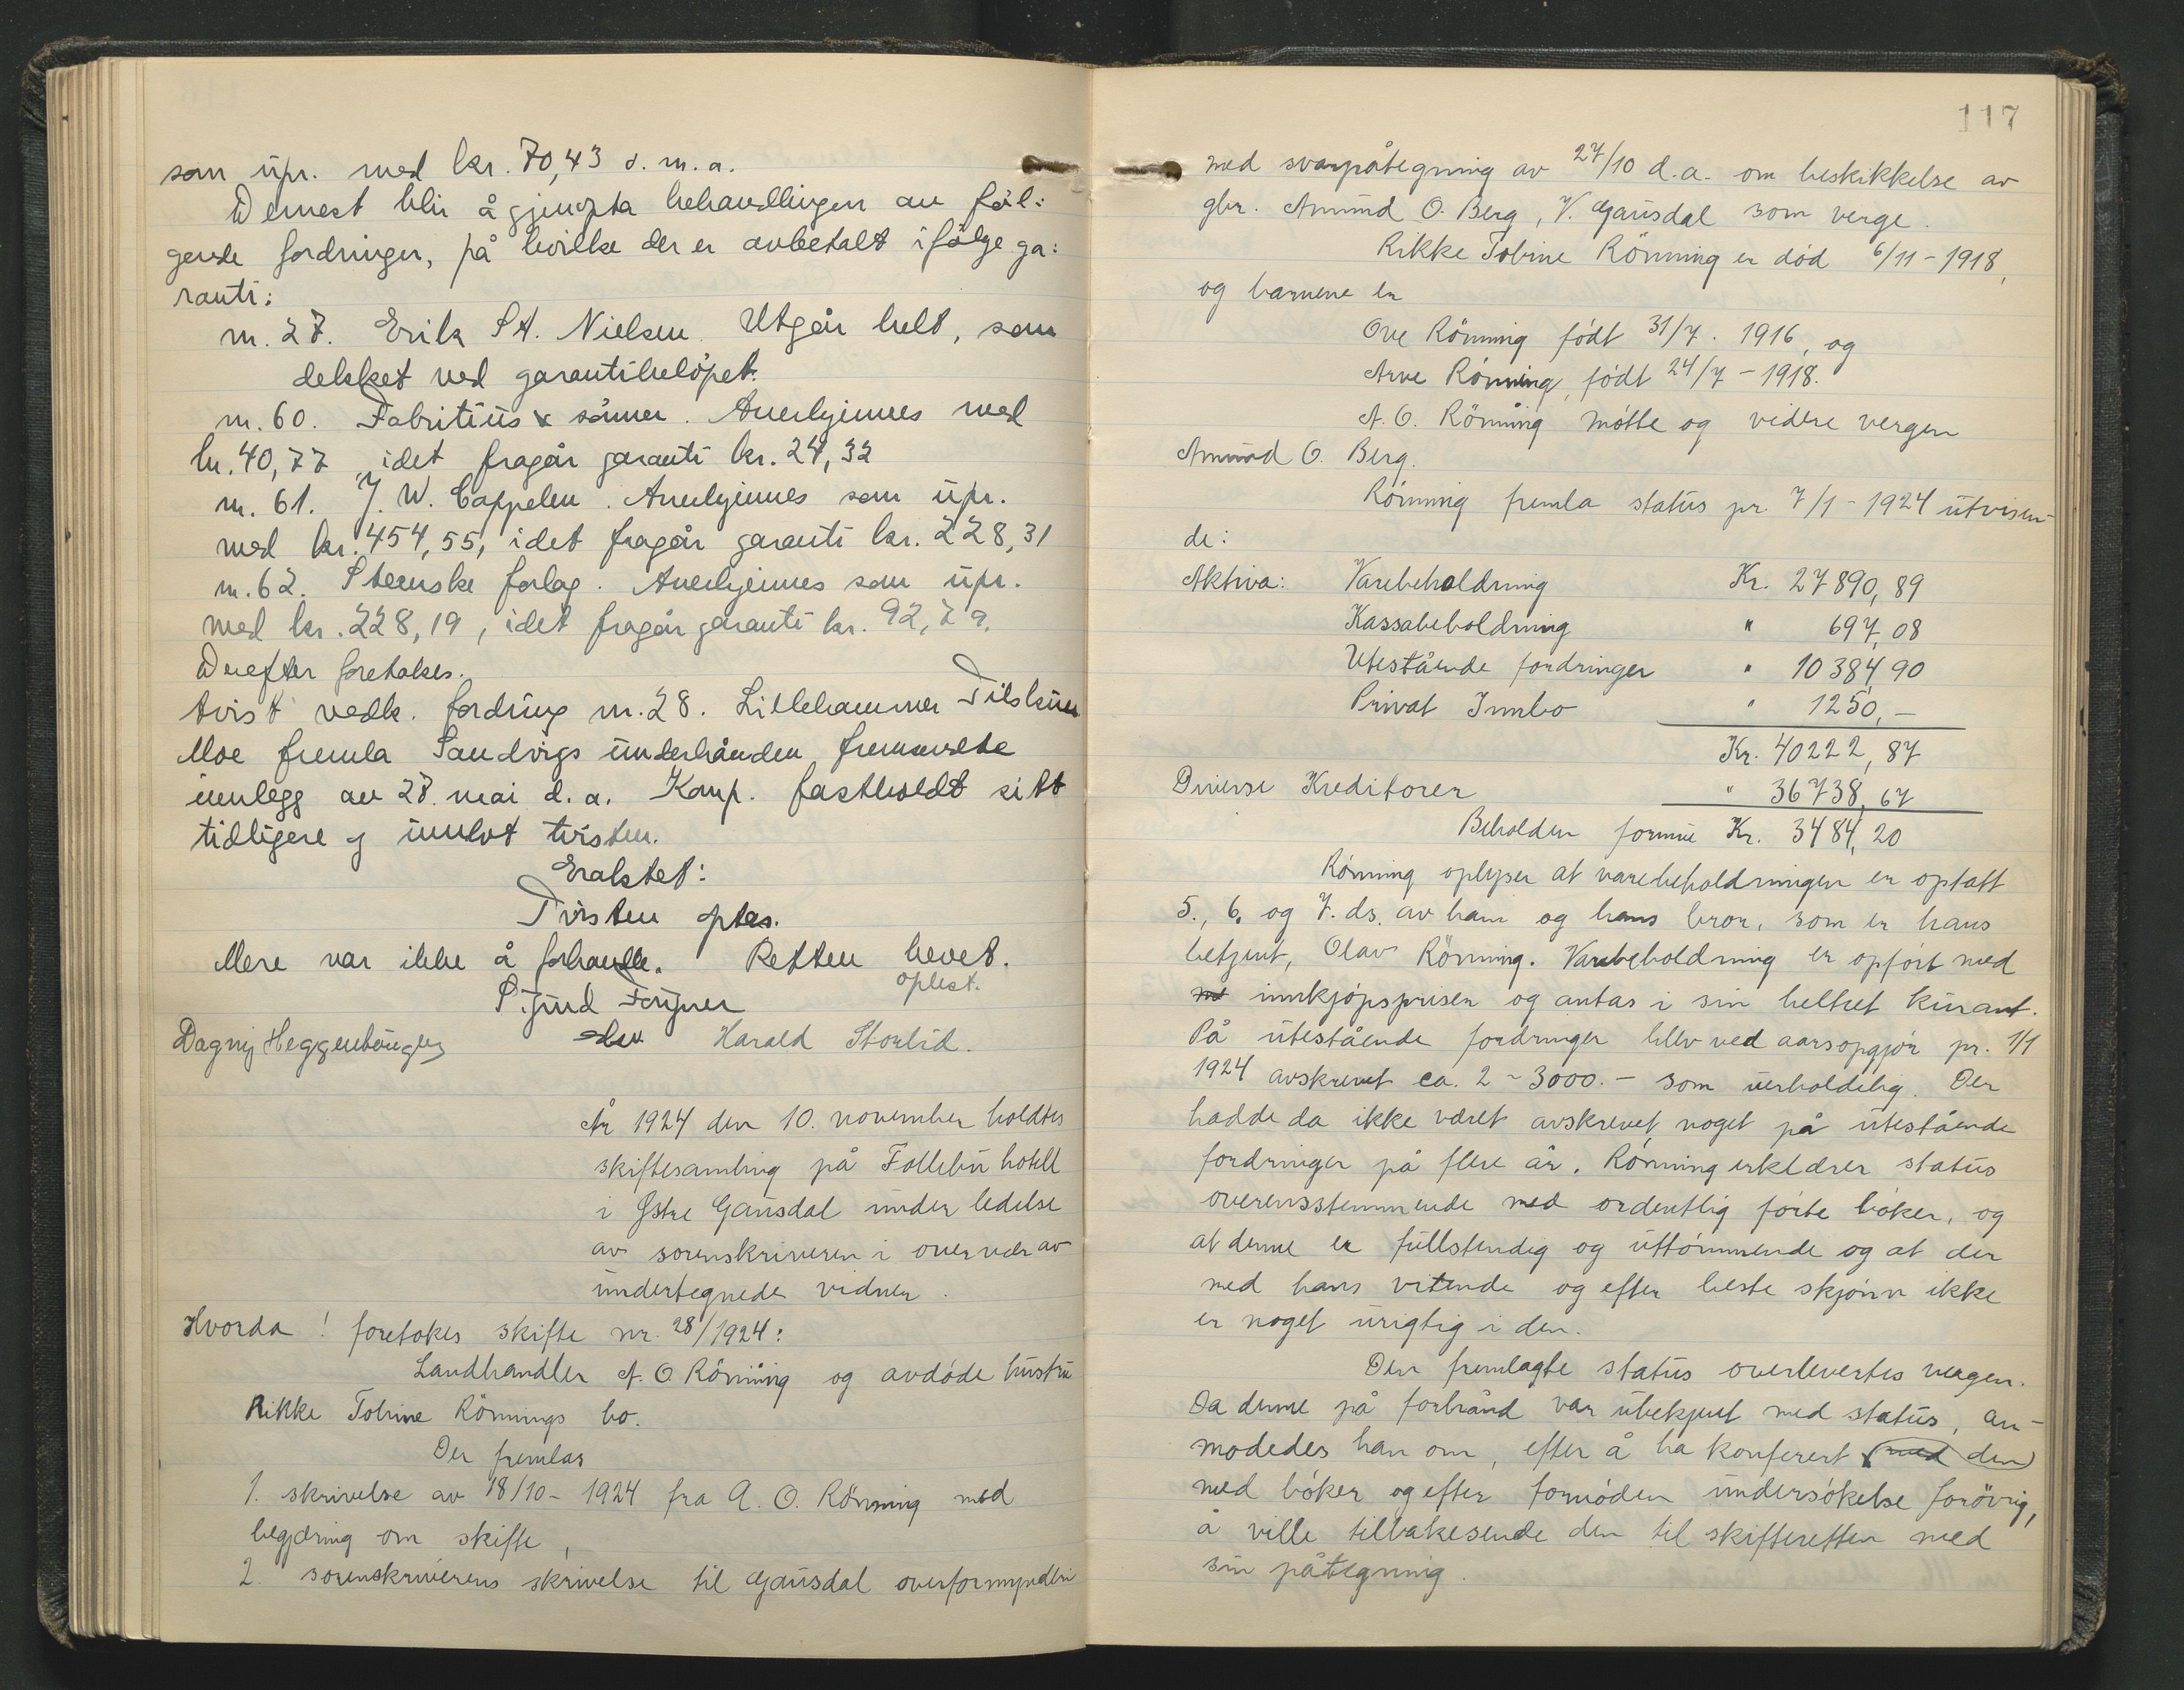 som upr. med kr. 70,43 d. m. a.
Dernest blir å gjenopta behandlingen av føl:
gende fordringer, på hvilke der er avbetalt ifølge ga:
ranti:
nr. 27. Erik St. Nielsen. Utgår helt, som
dekket ved garantibeløpet.
nr. 60. Fabritius & sønner. Anerkjennes med
kr. 40,77, idet fragår garanti kr. 24,32
nr. 61. J. W. Cappelen. Anerkjennes som upr.
med kr. 454,55, idet fragår garanti kr. 228,31
nr. 62. Steenske forlag. Anerkjennes som upr.
med kr. 228,19, idet fragår garanti kr. 92,79.
Derefter foretokes.
tvist vedk. fordring nr. 28. Lillehammer Tilskuer
Moe fremla Sandvigs underhånden fremsendte
innlegg av 28. mai d. a. Komp. fastholdt sitt
tidligere og innlot tvisten.
Eraktet:
Tvisten optas.
Mere var ikke å forhandle. Retten hevet.
oplest.
Sigurd Fougner
Dagny Heggenhougen Harald Storlid.
År 1924 den 10. november holdtes
skiftesamling på Follebu hotell
i Østre Gausdal under ledelse
av sorenskriveren i overvær av
undertegnede vidner.
Hvorda! foretokes skifte nr. 28/1924:
Landhandler A. O. Rönning og avdøde hustru
Rikke Tobine Rönnings bo.
Der fremlas
1. skrivelse av 18/10 - 1924 fra A. O. Rönning med
begjæring om skifte,
2. sorenskriverens skrivelse til Gausdal overformynderi
117
med svarpåtegning av 27/10 d.a. om beskikkelse av
gbr. Amund O. Berg, V. Gausdal som verge.
Rikke Tobine Rönning er død 6/11 - 1918,
og barnene er
Ove Rönning født 31/7. 1916, og
Arve Rönning, født 24/7 - 1918.
A. O. Rönning møtte og videre vergen
Amund O. Berg.
Rönning fremla status pr. 7/1 - 1924 utvisen-
de:
Aktiva: Varebeholdning Kr. 27890,89
Kassabeholdning " 697,08
Utestående fordringer " 10384,90
Privat Innbo " 1250,-
Kr. 40222,87
Diverse Kreditorer " 36738,67
Beholden formue Kr. 3484,20
Rönning oplyser at varebeholdningen er optatt
5., 6. og 7. ds. av ham og hans bror, som er hans
betjent, Olav Rönning. Varebeholdning er opført med
innkjøpsprisen og antas i sin helhet kurant.
På utestående fordringer blev ved aarsopgjør pr. 1/1
1924 avskrevet ca. 2 - 3000.- som uerholdelig. Der
hadde da ikke været avskrevet noget på utestående
fordringer på flere år. Rönning erklærer status
overensstemmende med ordentlig førte bøker, og
at denne er fullstendig og uttømmende og at der
med hans vitende og efter beste skjønn ikke
er noget urigtig i den.
Den fremlagte status overlevertes vergen.
Da denne på forhånd var ubekjent med status, an-
modedes han om, efter å ha konferert (med den)
med bøker og efter fornøden undersøkelse forøvrig,
å ville tilbakesende den til skifteretten med
sin påtegning.